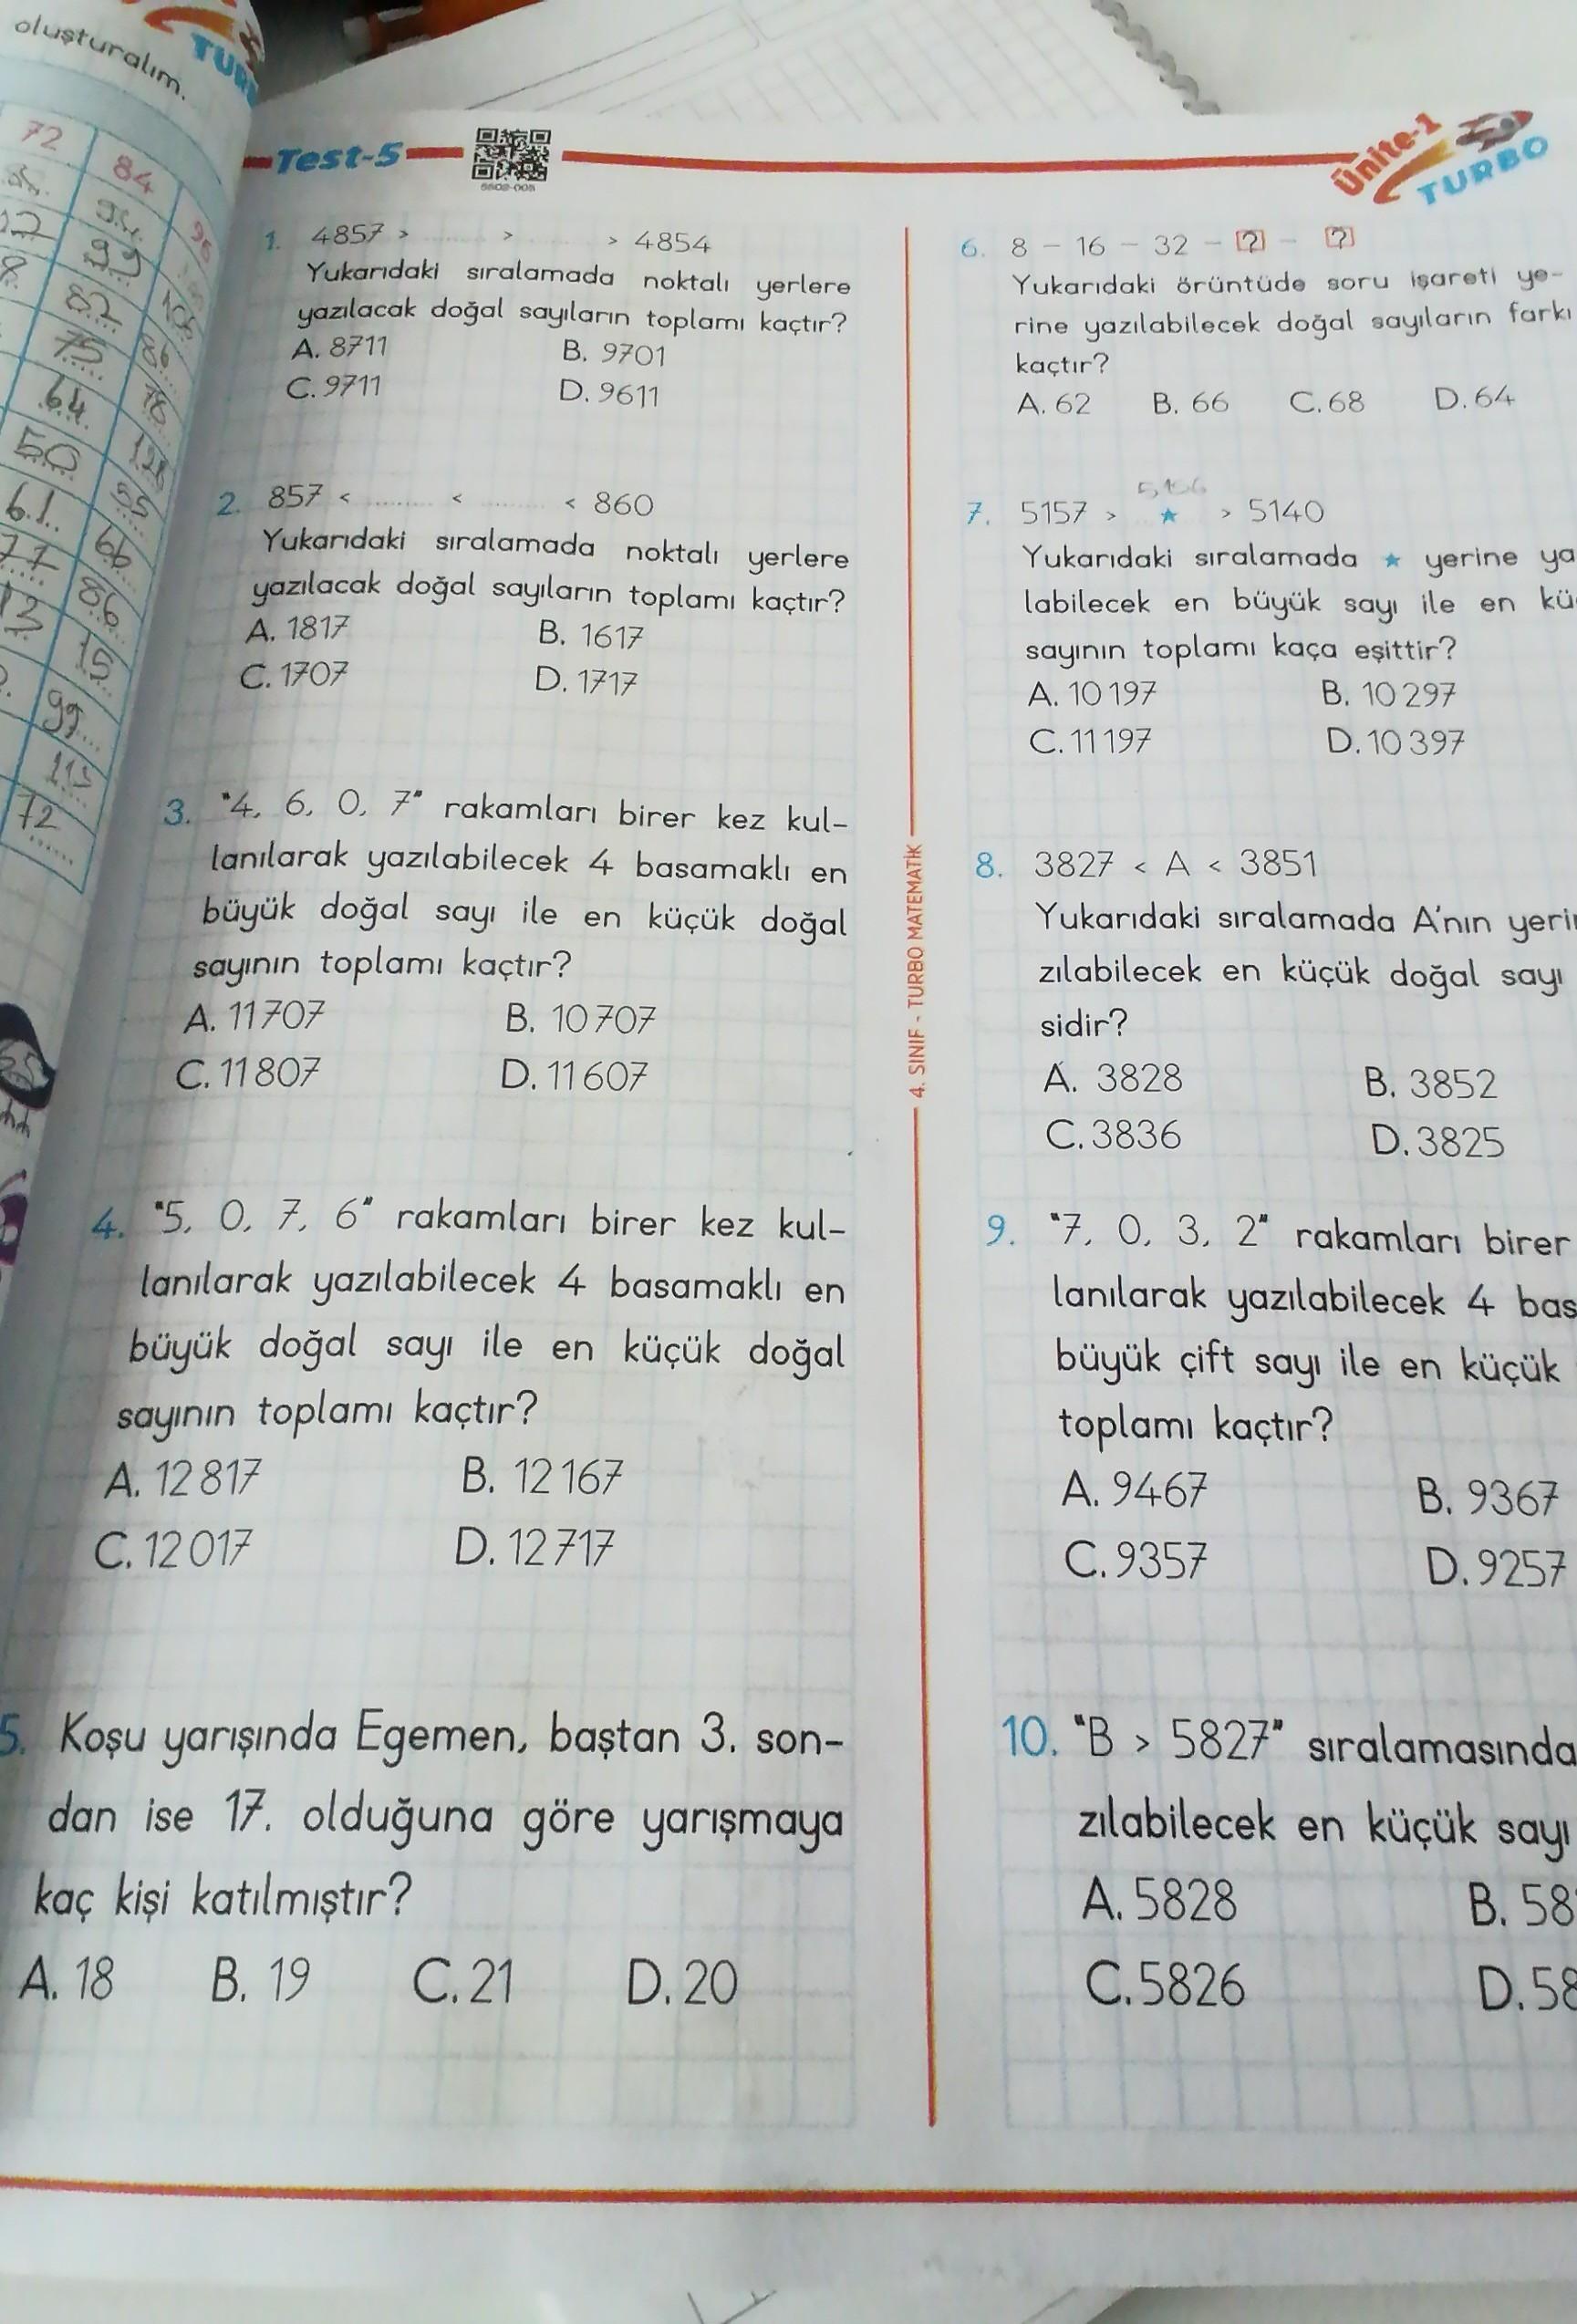 oluşturalım.
TUR
72 84 96
99
82
75
64
50
61
77 66
13 86
15
99
113
72
Test-5
Ünite-1
TURBO
1. 4857 > ......... > ......... > 4854
Yukarıdaki sıralamada noktalı yerlere
yazılacak doğal sayıların toplamı kaçtır?
A. 8711 B. 9701
C. 9711 D. 9611
2. 857 < ......... < ......... < 860
Yukarıdaki sıralamada noktalı yerlere
yazılacak doğal sayıların toplamı kaçtır?
A. 1817 B. 1617
C. 1707 D. 1717
3. "4, 6, 0, 7" rakamları birer kez kul-
lanılarak yazılabilecek 4 basamaklı en
büyük doğal sayı ile en küçük doğal
sayının toplamı kaçtır?
A. 11 707 B. 10 707
C. 11 807 D. 11 607
4. "5, 0, 7, 6" rakamları birer kez kul-
lanılarak yazılabilecek 4 basamaklı en
büyük doğal sayı ile en küçük doğal
sayının toplamı kaçtır?
A. 12 817 B. 12 167
C. 12 017 D. 12 717
5. Koşu yarışında Egemen, baştan 3. son-
dan ise 17. olduğuna göre yarışmaya
kaç kişi katılmıştır?
A. 18 B. 19 C. 21 D. 20
4. SINIF - TURBO MATEMATİK
6. 8 – 16 – 32 – ? – ?
Yukarıdaki örüntüde soru işareti ye-
rine yazılabilecek doğal sayıların farkı
kaçtır?
A. 62 B. 66 C. 68 D. 64
5156
7. 5157 > ★ > 5140
Yukarıdaki sıralamada ★ yerine ya
labilecek en büyük sayı ile en kü
sayının toplamı kaça eşittir?
A. 10 197 B. 10 297
C. 11 197 D. 10 397
8. 3827 < A < 3851
Yukarıdaki sıralamada A'nın yeri
zılabilecek en küçük doğal sayı
sidir?
A. 3828 B. 3852
C. 3836 D. 3825
9. "7, 0, 3, 2" rakamları birer
lanılarak yazılabilecek 4 bas
büyük çift sayı ile en küçük
toplamı kaçtır?
A. 9467 B. 9367
C. 9357 D. 9257
10. "B > 5827" sıralamasında
zılabilecek en küçük sayı
A. 5828 B. 58
C. 5826 D. 58